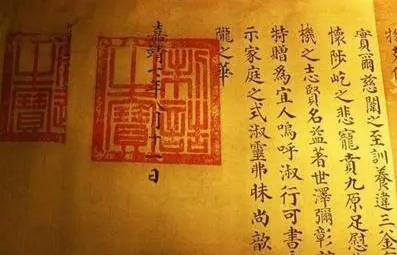 實爾慈闈之至訓養違三釜
懷陟屺之悲寵賁九原足慰
機之志賢名益著世澤彌彰
特贈為宜人嗚呼淑行可書
示家庭之式淑靈弗昧尚歆
隴之華
嘉靖七年八月十一日
制誥
之寶
之寶